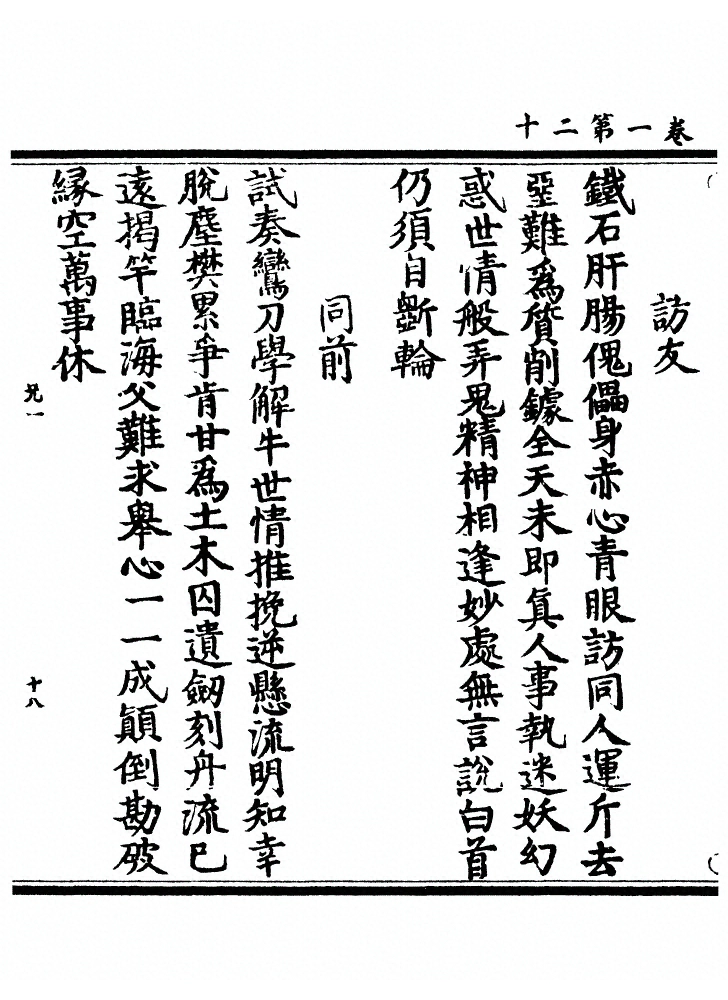 卷一第二十
訪友
鐵石肝腸傀儡身赤心青眼訪同人運斤去
堊難爲質削鐻全天未即眞人事執迷妖幻
惑世情般弄鬼精神相逢妙處無言說白首
仍須自斲輪
同前
試奏鸞刀學解牛世情推挽逆懸流明知幸
脫塵樊累爭肯甘爲土木囚遺劒刻舟流已
遠揭竿臨海父難求舉心一一成顛倒勘破
緣空萬事休
兄一
十八